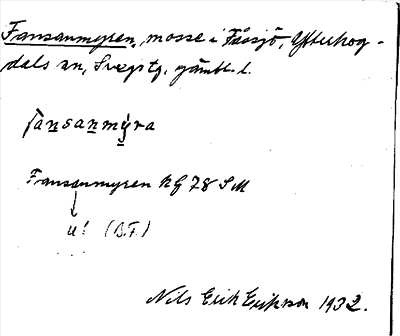 Fansanmyren, mosse i Fåssjö, Ytterhog-
dals sn, Svegs tg, Jämtl. l.
fansanmýra
Fansanmyren hg 78 SM
u! (B.F.)
Nils Erik Erikson 1932.